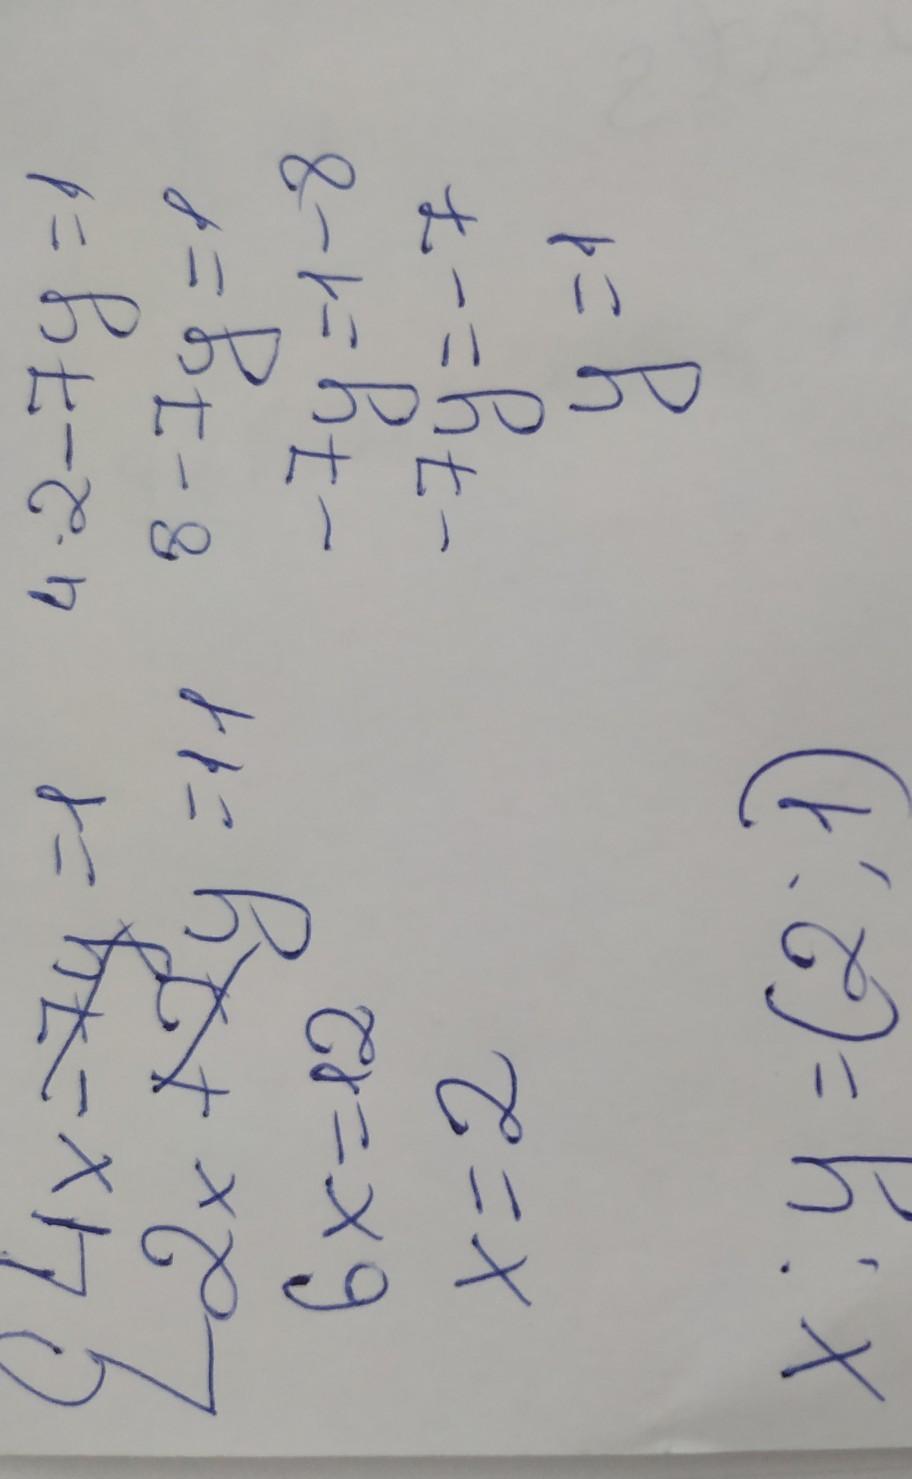 4x - 7y = 1
2x + 7y = 11
6x = 12
x = 2
4·2 - 7y = 1
8 - 7y = 1
-7y = 1 - 8
-7y = -7
y = 1
x ; y = (2 ; 1)